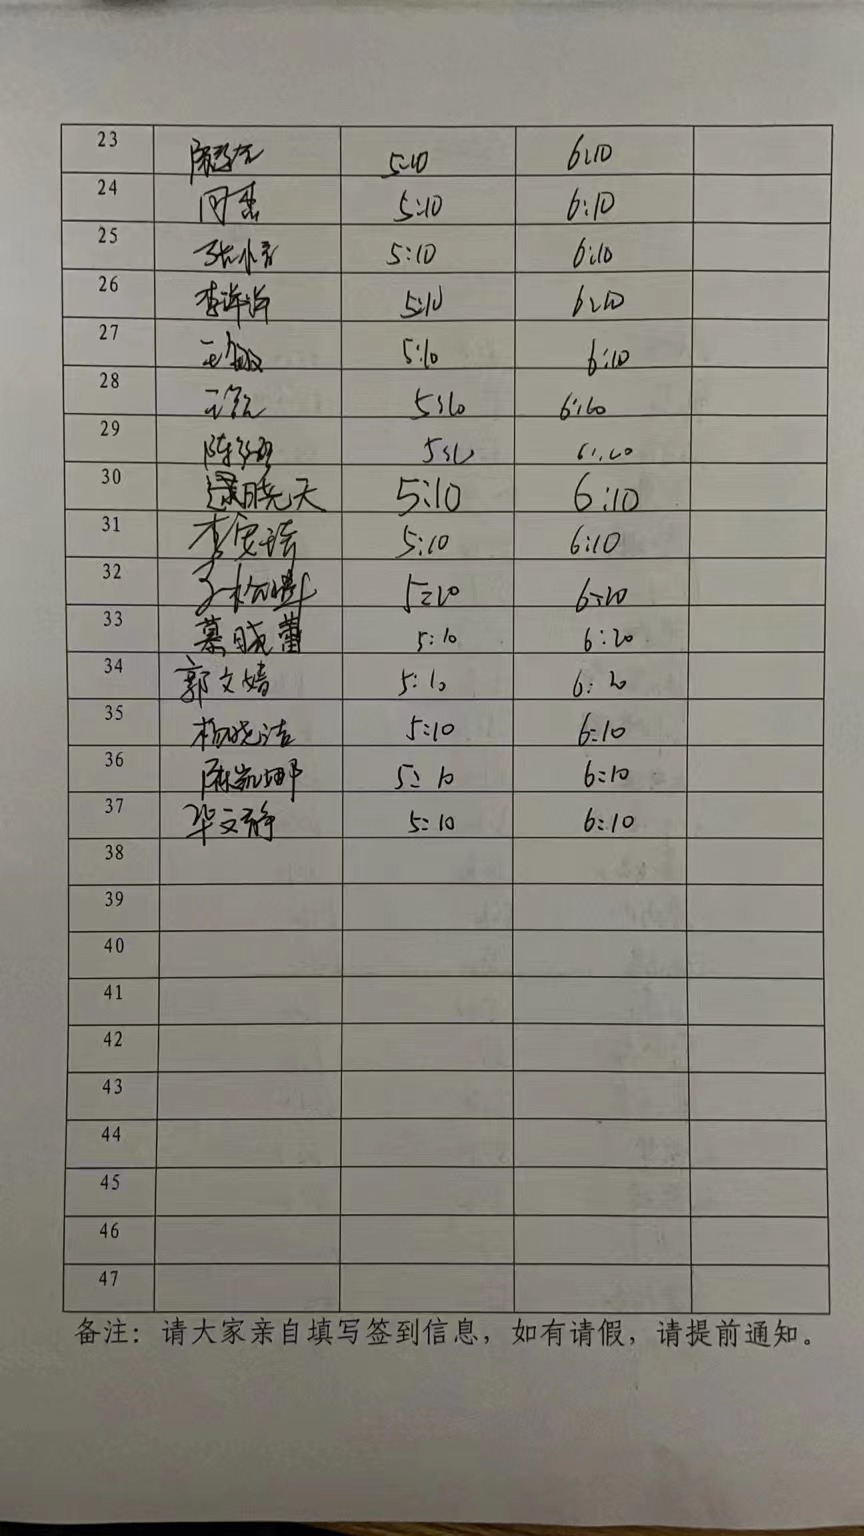 23 5:10 6:10
24 5:10 6:10
25 5:10 6:10
26 李 5:10 6:10
27 王敏 5:10 6:10
28 王 5:10 6:10
29 陈 5:10 6:10
30 逯晓天 5:10 6:10
31 李安琦 5:10 6:10
32 5:10 6:10
33 慕晓蕾 5:10 6:20
34 郭文婧 5:10 6:20
35 杨晓洁 5:10 6:10
36 陈凯娜 5:10 6:10
37 毕文静 5:10 6:10
38
39
40
41
42
43
44
45
46
47
备注：请大家亲自填写签到信息，如有请假，请提前通知。